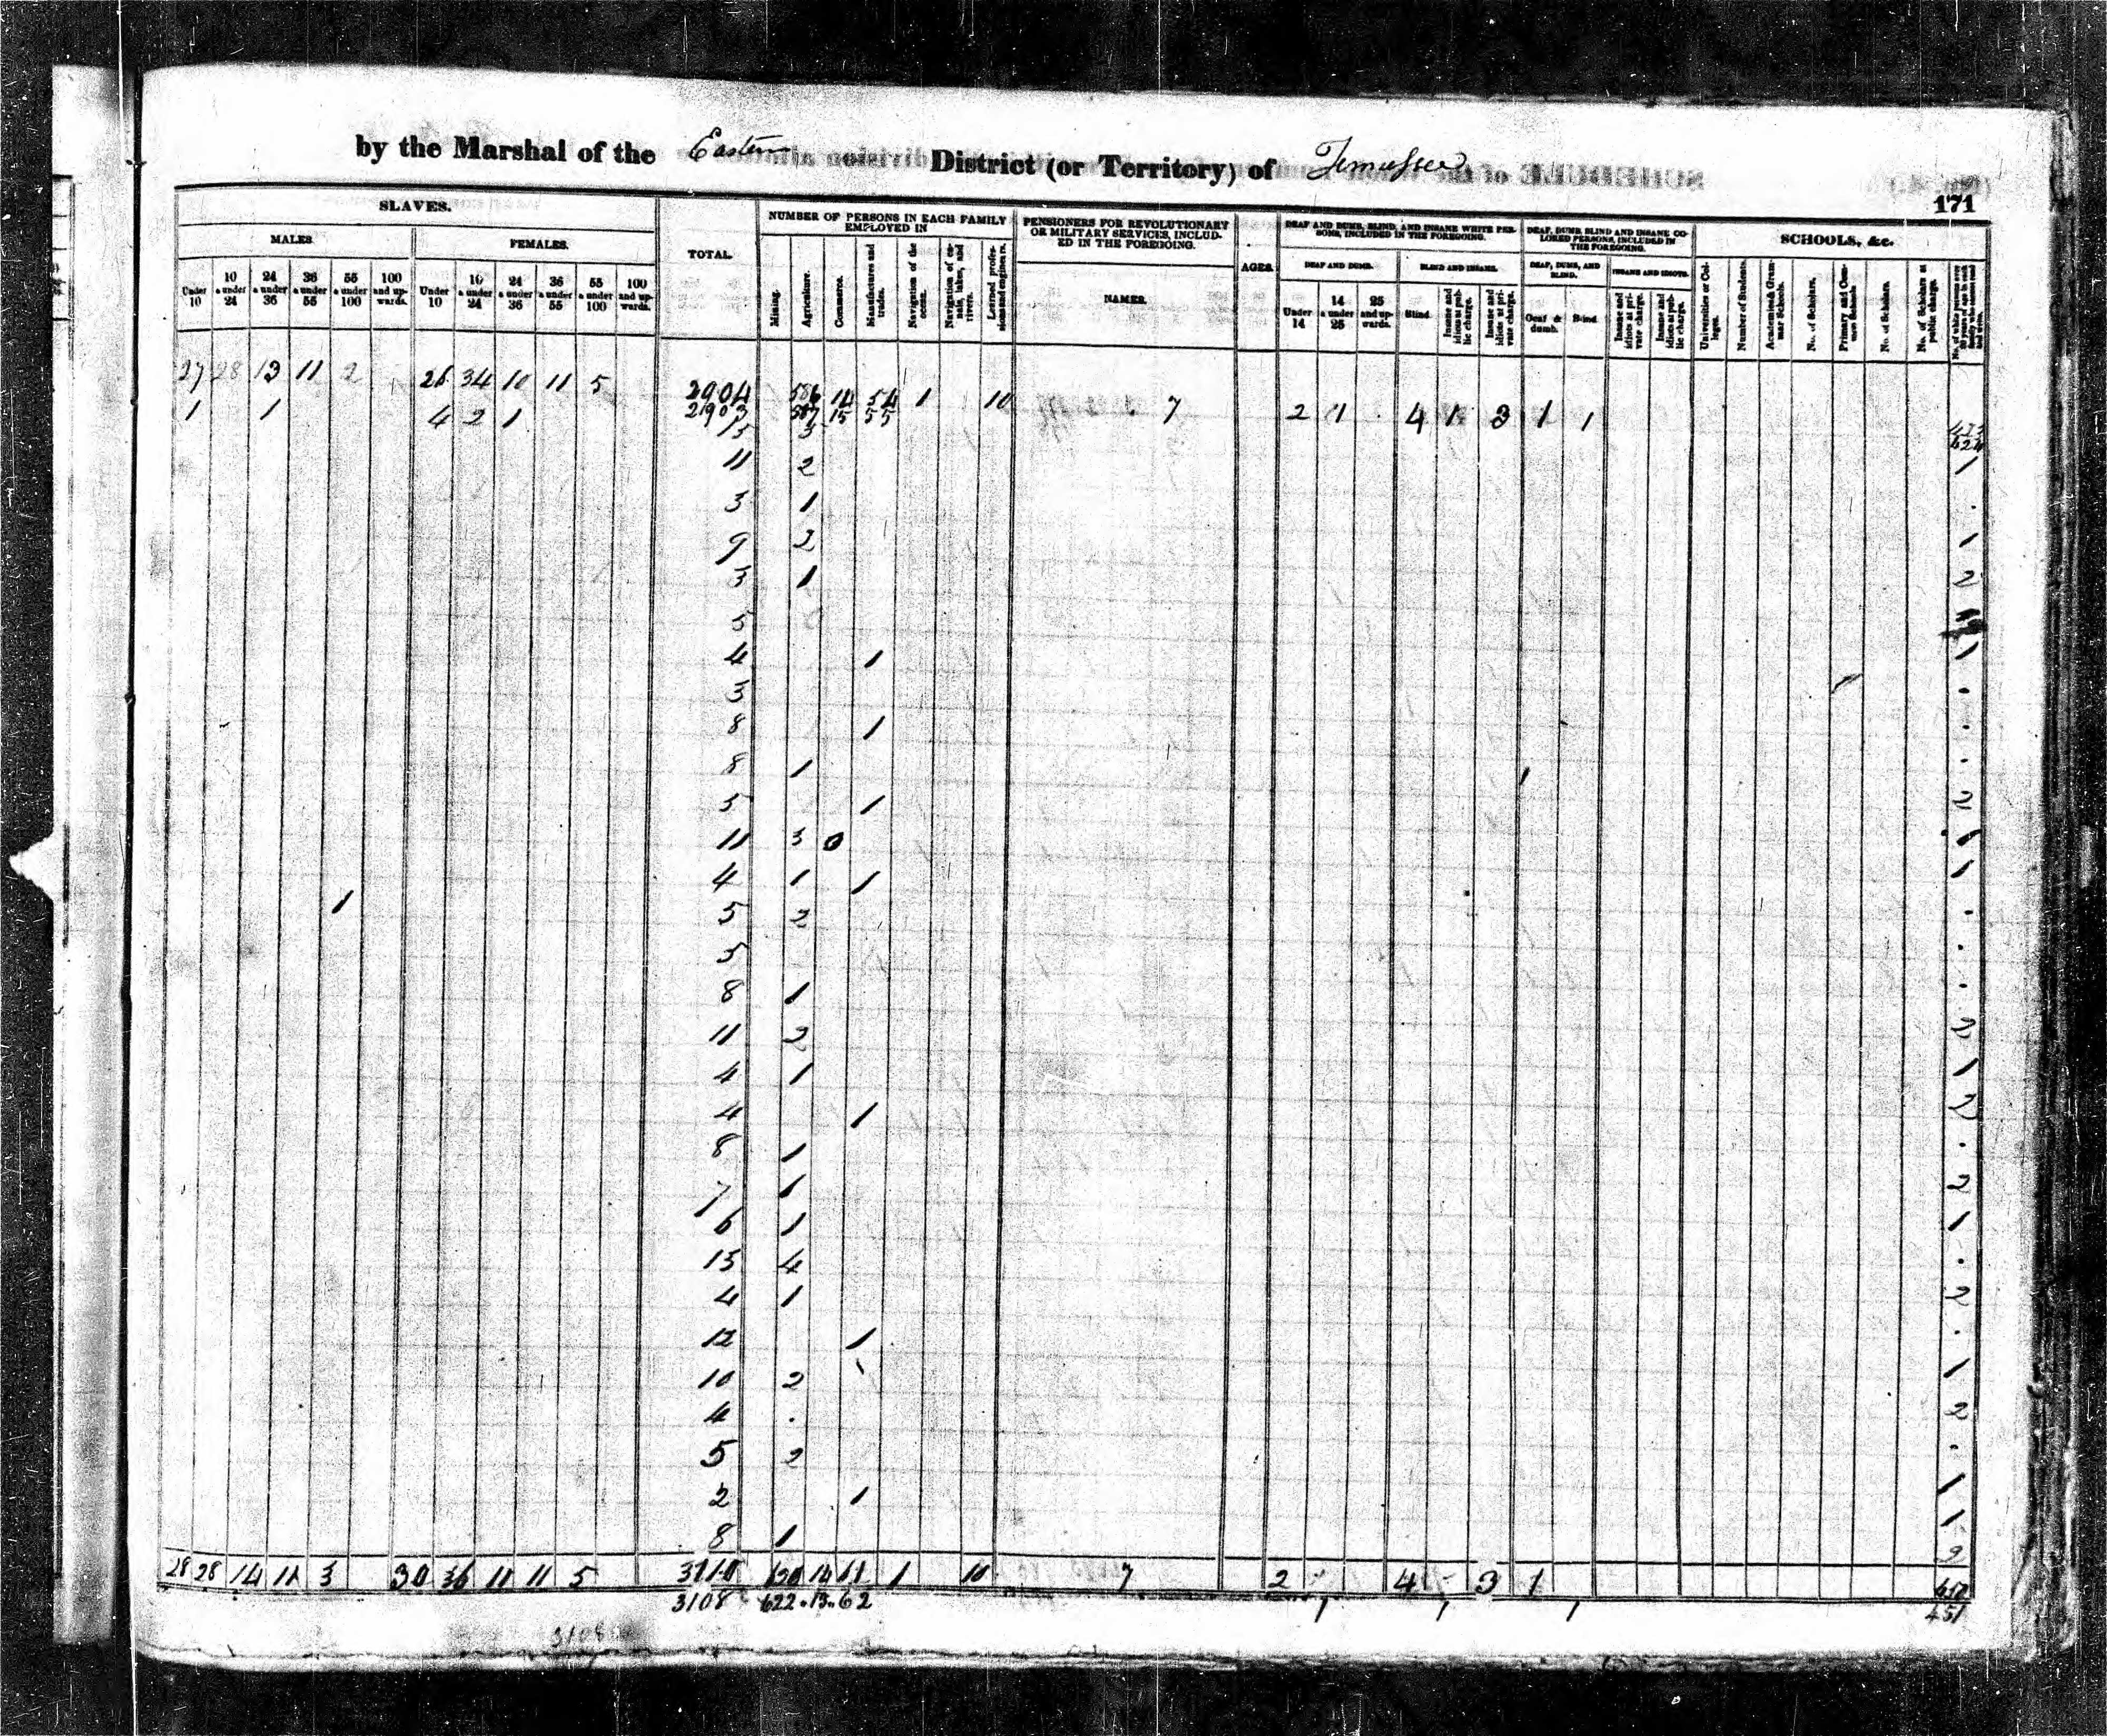 by the Marshal of the Eastern District (or Territory) of Tennessee
171
SLAVES.
MALES.
FEMALES.
Under 10
10 & under 24
24 & under 36
36 & under 55
55 & under 100
100 and upwards.
Under 10
10 & under 24
24 & under 36
36 & under 55
55 & under 100
100 and upwards.
TOTAL.
NUMBER OF PERSONS IN EACH FAMILY EMPLOYED IN
Mining.
Agriculture.
Commerce.
Manufactures and trades.
Navigation of the ocean.
Navigation of canals, lakes, and rivers.
Learned professions and engineers.
PENSIONERS FOR REVOLUTIONARY OR MILITARY SERVICES, INCLUDED IN THE FOREGOING.
NAMES.
AGES.
DEAF AND DUMB, BLIND, AND INSANE WHITE PERSONS, INCLUDED IN THE FOREGOING.
DEAF AND DUMB.
Under 14
14 & under 25
25 and upwards.
BLIND AND INSANE.
Blind.
Insane and idiots at public charge.
Insane and idiots at private charge.
DEAF, DUMB, BLIND AND INSANE COLORED PERSONS, INCLUDED IN THE FOREGOING.
DEAF, DUMB, AND BLIND.
Deaf & dumb.
Blind.
INSANE AND IDIOTS.
Insane and idiots at private charge.
Insane and idiots at public charge.
SCHOOLS, &c.
Universities or Colleges.
Number of Students.
Academies & Grammar Schools.
No. of Scholars.
Primary and Common Schools.
No. of Scholars.
No. of Scholars at public charge.
No. of white persons over 20 years of age in each family who cannot read and write.
27 28 13 11 2 26 34 10 11 5 2904 586 14 54 1 10 7 2 1 4 1 3 1 1
1 1 4 2 1 587 15 55
13 3
11 2 1
3 1
9 2 1
3 1 2
5
4 1 1
3
8 1
8 1
5 1 2
11 3 0 1
4 1 1 1
1 5 2
5
8 1
11 2 2
4 1 1
4 1 2
8 1
7 1 2
6 1 1
13 4
4 1 2
12 1
10 2 1
4 2
5 2
2 1 1
8 1 1
28 28 14 11 3 30 36 11 11 5 14 61 1 10 7 2 4 3 1
3108 622 13 62 1 1 1 451
3108